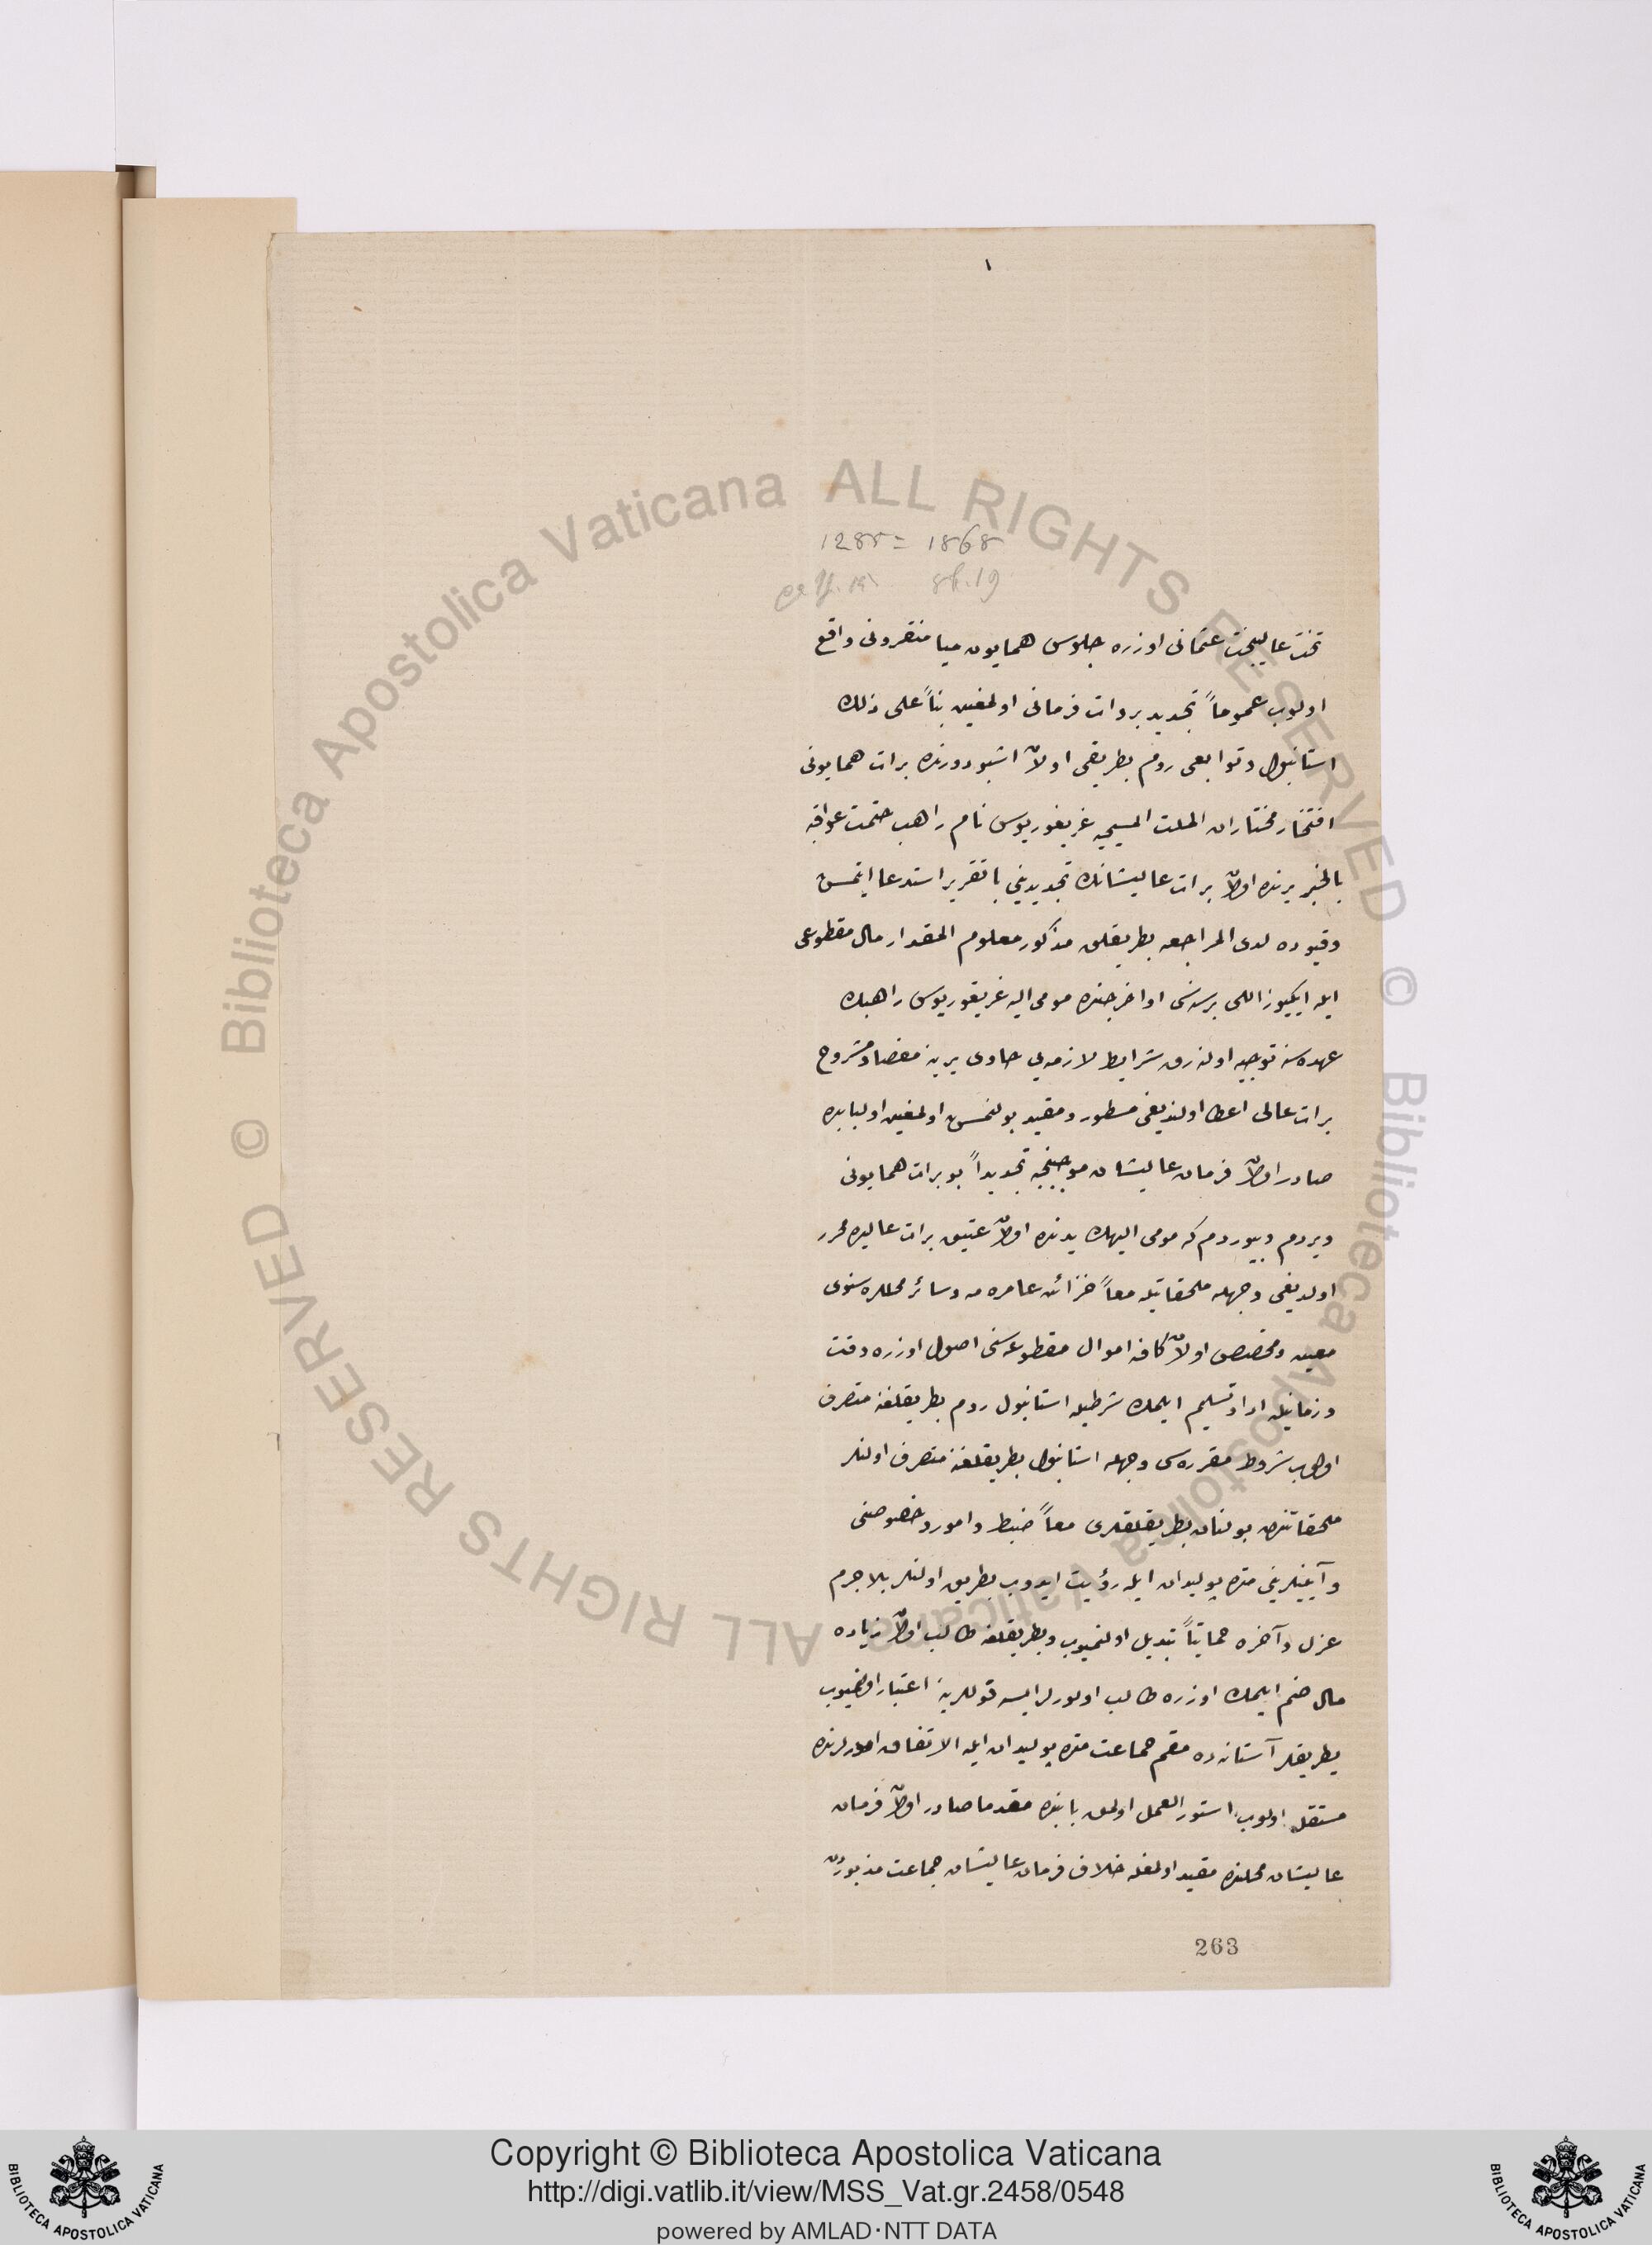 ١
1285 = 1868
تخت عالیبخت عثمانی اوزره جلوس همایون میامنمقرونی واقع
اولوب عموماً تجدید بروات فرمانی اولمغین بناً علی ذلك
استانبول و توابعی روم بطریقی اولان اشبو دورنده برات همایونی
افتخار مختاران الملت المسیحیه غریغوریوس نام راهب ختمت عواقبه
بالخیر یدنده اولان برات عالیشانك تجدیدینی با تقریر استدعا ایتمسن
و قیوده لدی المراجعه بطریقلق مذكور معلوم المقدار مال مقطوعی
ایله ایكیوز اللی برسنه‌سی اواخرجنده مومی الیه غریغوریوس راهبك
عهده‌سنه توجیه اولنه‌رق شرایط لازمه‌یی حاوی یدینه مفصل و مشروح
برات عالی اعطا اولندیغی مسطور و مقید بولنمسن اولمغین اولبابده
صادر اولان فرمان عالیشان موجبنجه تجدیداً بو برات همایونی
ویردم و بیوردم كه مومی الیهك یدنده اولان عتیق برات عالیده محرر
اولدیغی وجهله ملحقاتیله معاً خزائن عامره مه و سائر محللره سنوی
معین و مخصص اولان كافه اموال مقطوعه‌سنی اصول اوزره وقت
و زمانیله ادا و تسلیم ایلمك شرطیله استانبول روم بطریقلغنه متصرف
اولوب شروط مقرره‌سی وجهله استانبول بطریقلغنه متصرف اولنلر
ملحقاتندن بولنان بطریقلقلری معاً ضبط و امور و خصوصنی
و آیینلرینی متره پولیدان ایله رؤیت ایدوب بطریق اولنلر بلا جرم
عزل و آخره حمایتاً تبدیل اولنمیوب و بطریقلغه طالب اولان زیاده
مال ضم ایلمك اوزره طالب اولورلر ایسه قوللرینه اعتبار اولنمیوب
بطریقلر آستانه‌ده مقیم جماعت متره پولیدان ایله الاتفاق امورلرنده
مستقل اولوب دستور العمل اولمق بابنده مقدما صادر اولان فرمان
عالیشان محلنده مقید اولمغله خلاف فرمان عالیشان جماعت مزبوردن
263
Copyright © Biblioteca Apostolica Vaticana
http://digi.vatlib.it/view/MSS_Vat.gr.2458/0548
powered by AMLAD·NTT DATA